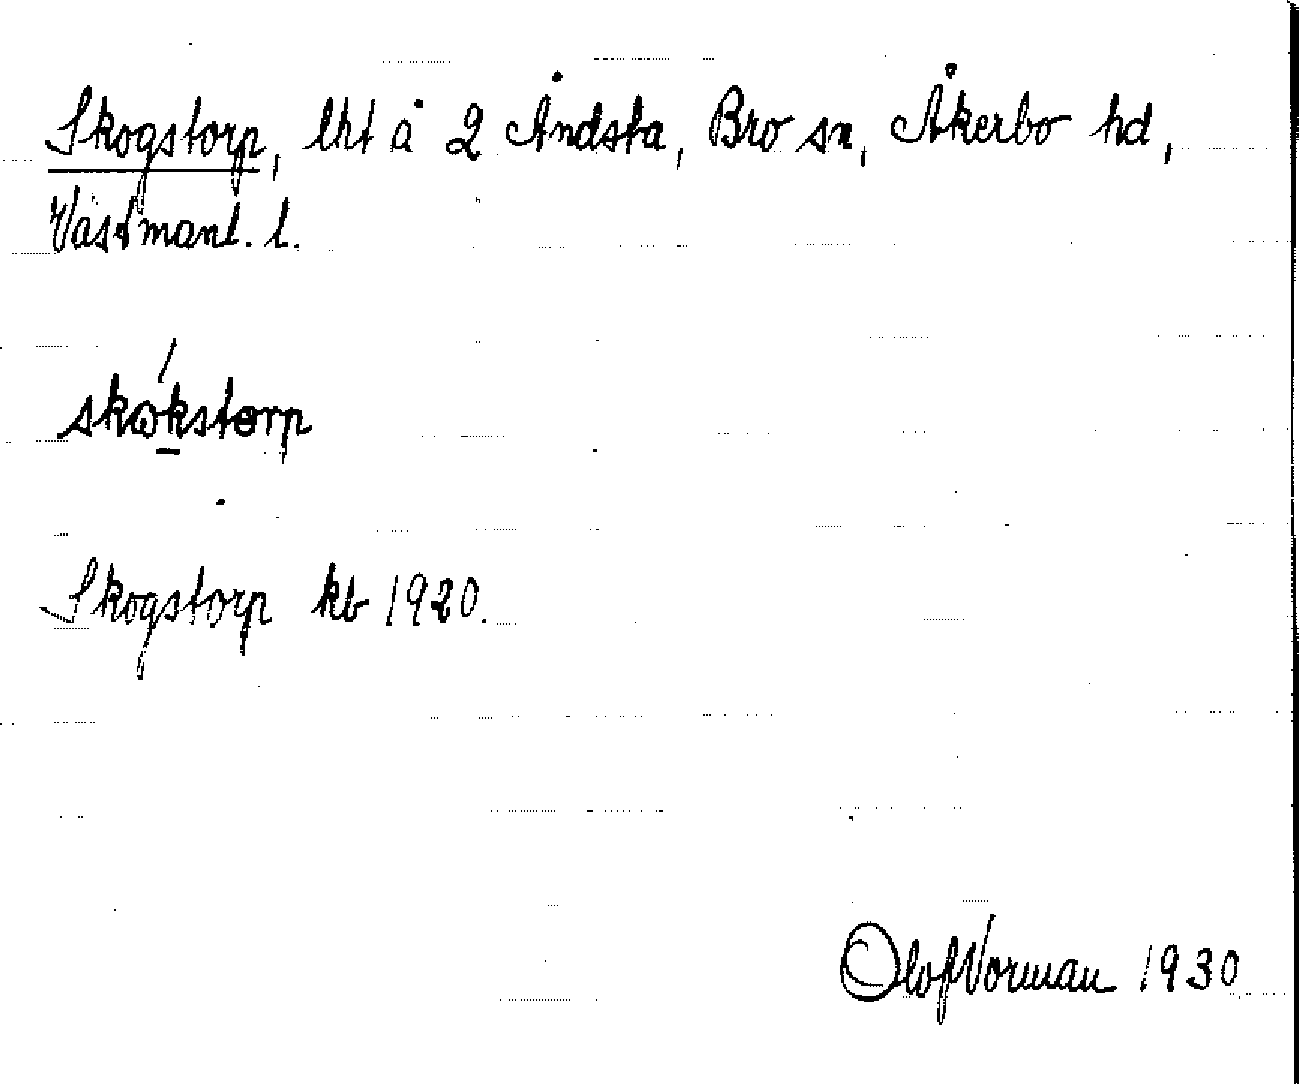 Skogstorp, lht å 2 Åndsta, Bro sn, Åkerbo hd,
Västmanl. l.
skωkstɵrp
Skogstorp kb 1920.
Olof Vorman 1930